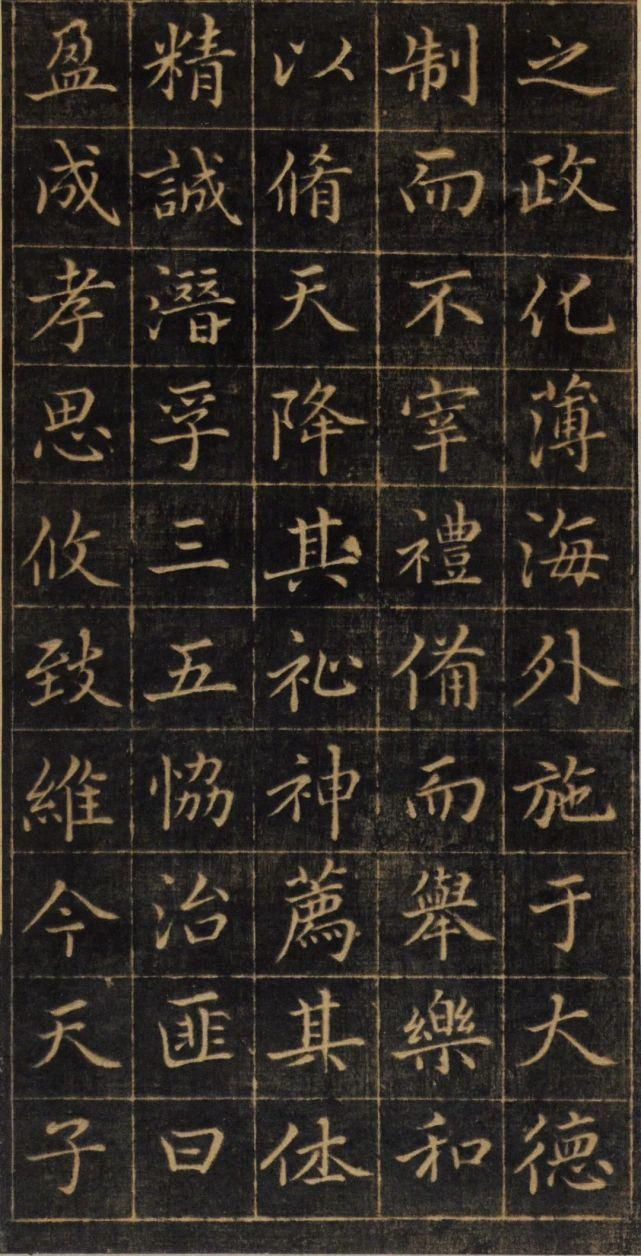 之政化薄海外施于大德
制而不宰禮備而舉樂和
以脩天降其祉神薦其休
精誠潛孚三五恊治匪曰
盈成孝思攸致維今天子